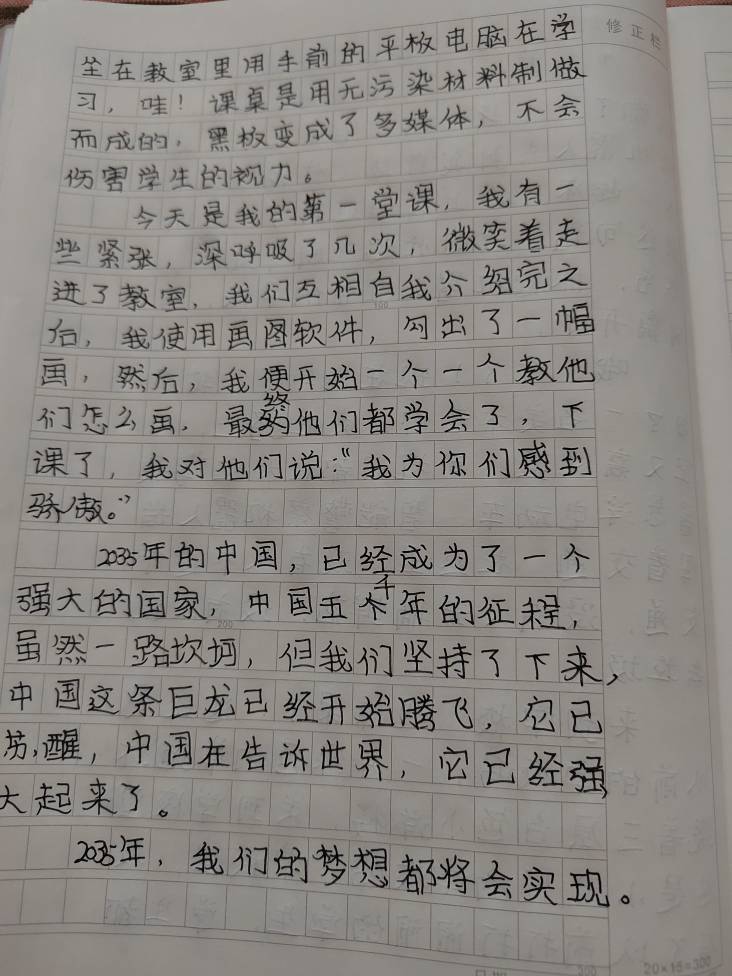 修正栏
坐在教室里用手前的平板电脑在学
习，哇！课桌是用无污染材料制做
而成的，黑板变成了多媒体，不会
伤害学生的视力。
今天是我的第一堂课，我有一
些紧张，深呼吸了几次，微笑着走
进了教室，我们互相自我介绍完之
后，我使用画图软件，勾出了一幅
画，然后，我便开始一个一个教他
们怎么画，最终他们都学会了，下
课了，我对他们说：“我为你们感到
骄傲。”
2035年的中国，已经成为了一个
强大的国家，中国五千年的征程，
虽然一路坎坷，但我们坚持了下来，
中国这条巨龙已经开始腾飞，它已
苏醒，中国在告诉世界，它已经强
大起来了。
2035年，我们的梦想都将会实现。
20×15=300